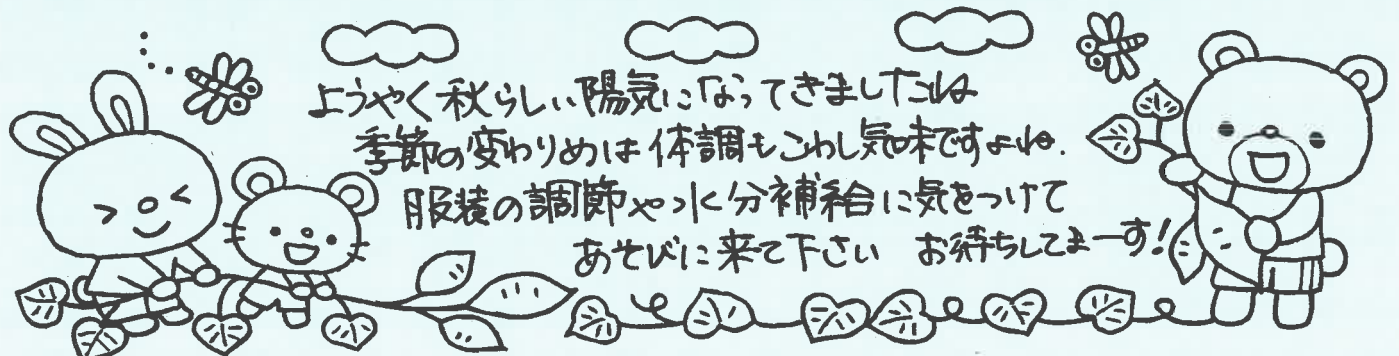 ようやく秋らしい陽気になってきましたね
季節の変わりめは体調もこわし気味ですよね.
服装の調節や水分補給に気をつけて
あそびに来て下さい お待ちしてまーす!